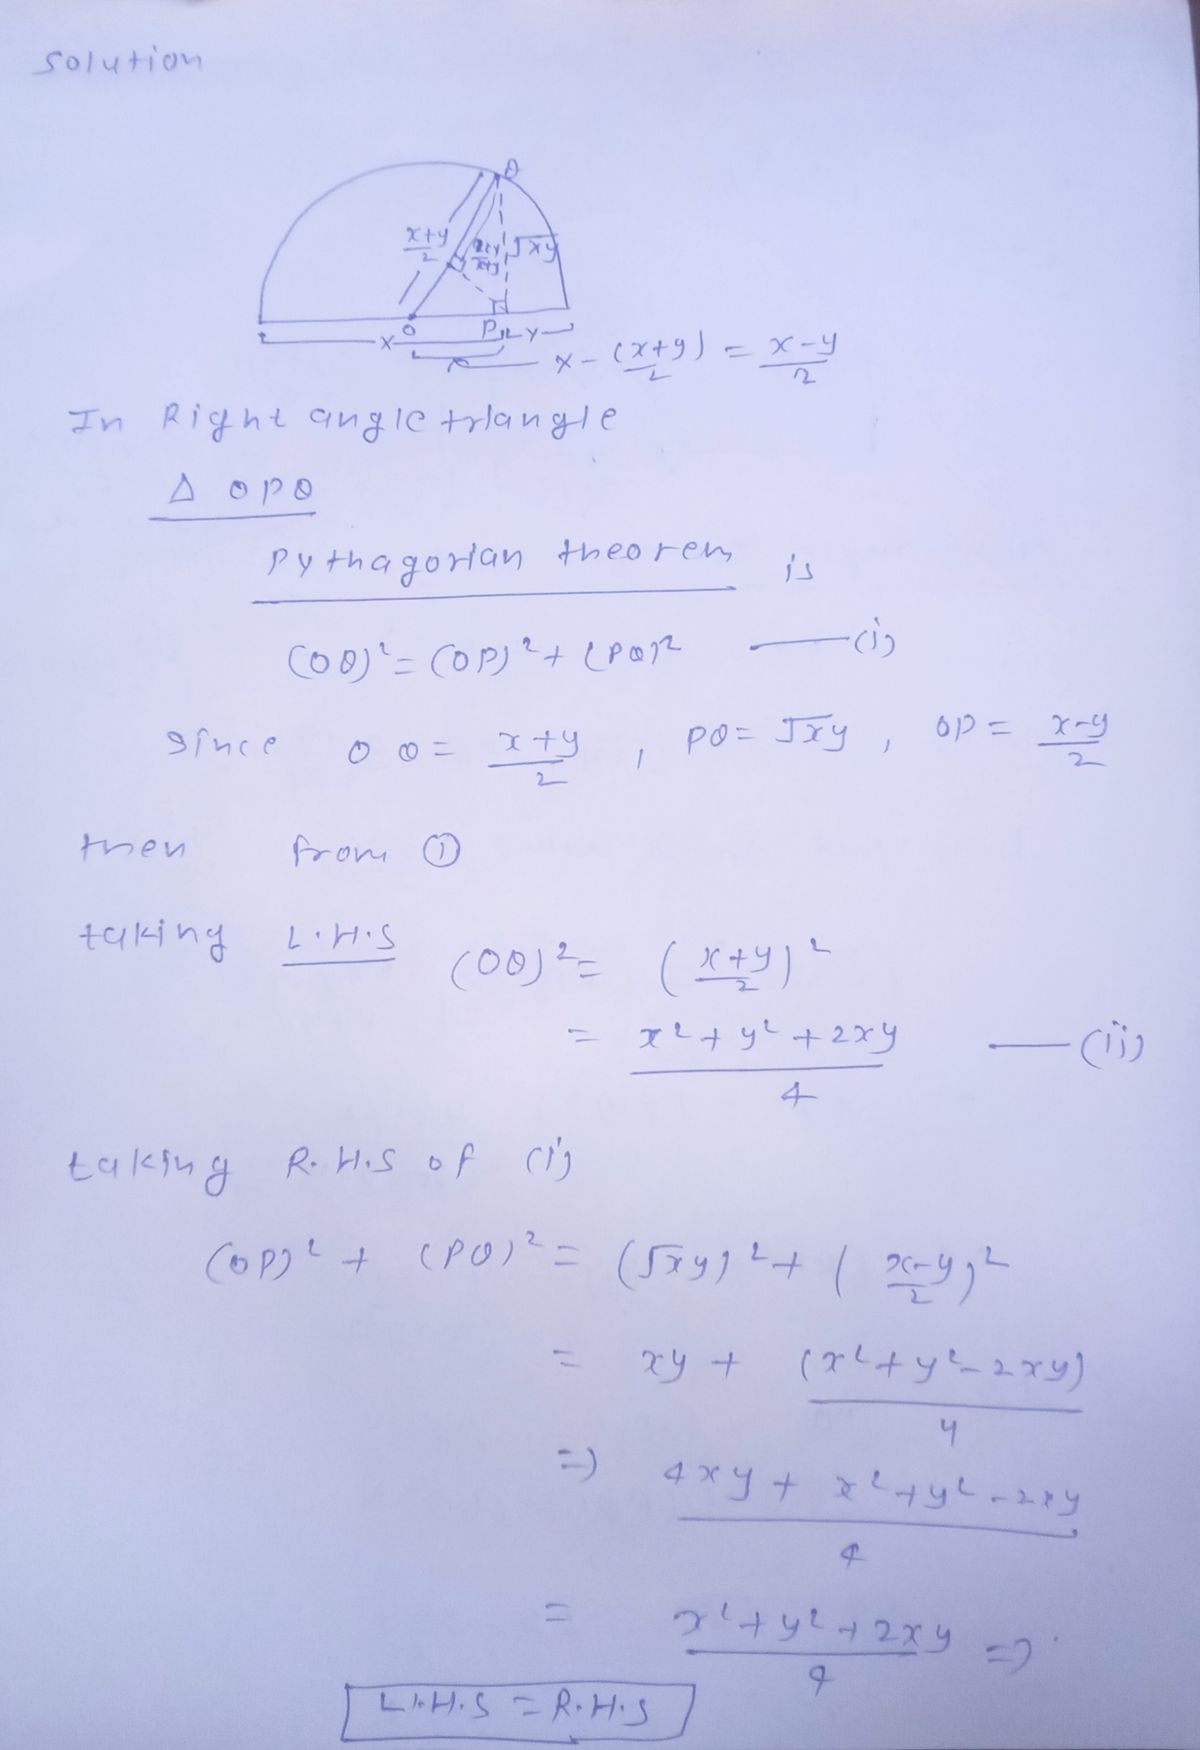 Solution
Q
x+y/2
√xy
x O P y
x - (x+y)/2 = x-y/2
In Right angle triangle
Δ OPQ
Pythagorian theorem is
(OQ)² = (OP)² + (PQ)² —(i)
Since OQ = x+y/2 , PQ = √xy , OP = x-y/2
then from ①
taking L.H.S (OQ)² = (x+y/2)²
= x²+y²+2xy/4 —(ii)
taking R.H.S of (i)
(OP)² + (PQ)² = (√xy)² + (x-y/2)²
= xy + (x²+y²-2xy)/4
=> 4xy + x²+y²-2xy/4
= x²+y²+2xy/4 =>
L.H.S = R.H.S